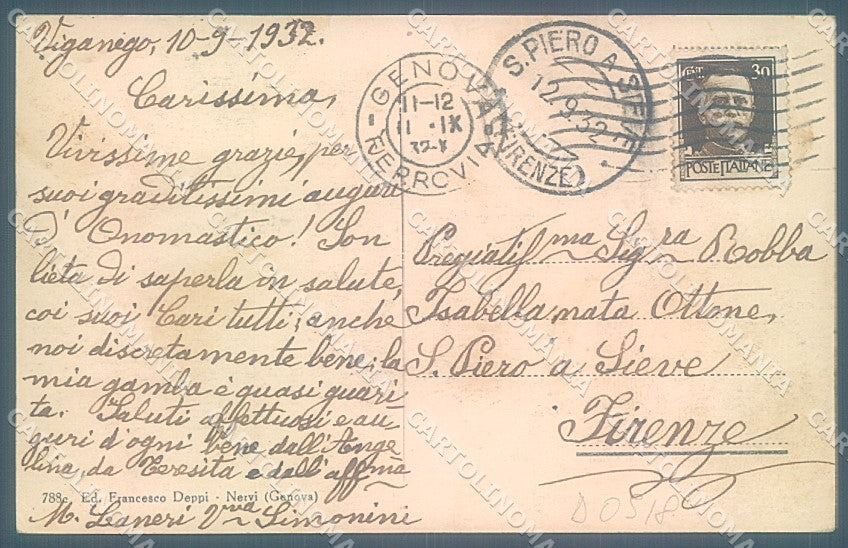 Viganego, 10-9-1932.
Carissima,
Vivissime grazie, per i
suoi graditissimi auguri
d'Onomastico! Son
lieta di saperla in salute,
coi suoi Cari tutti; anche
noi discretamente bene; la
mia gamba è quasi guari
ta. Saluti affettuosi e au
guri d'ogni bene dall'Ange
lina, da Teresita e dall'aff.ma
M. Laneri V.va Simonini
788c Ed. Francesco Deppi - Nervi (Genova)
GENOVA
11-12
11 . IX
32-X
FERROVIA
S. PIERO A SIEVE
12.9.32
(FIRENZE)
CT. 30
POSTE ITALIANE
Pregiatis.ma Sig.ra Robba
Isabella nata Ottone,
S. Piero a Sieve
Firenze
D 0518
CARTOLINOMANIA